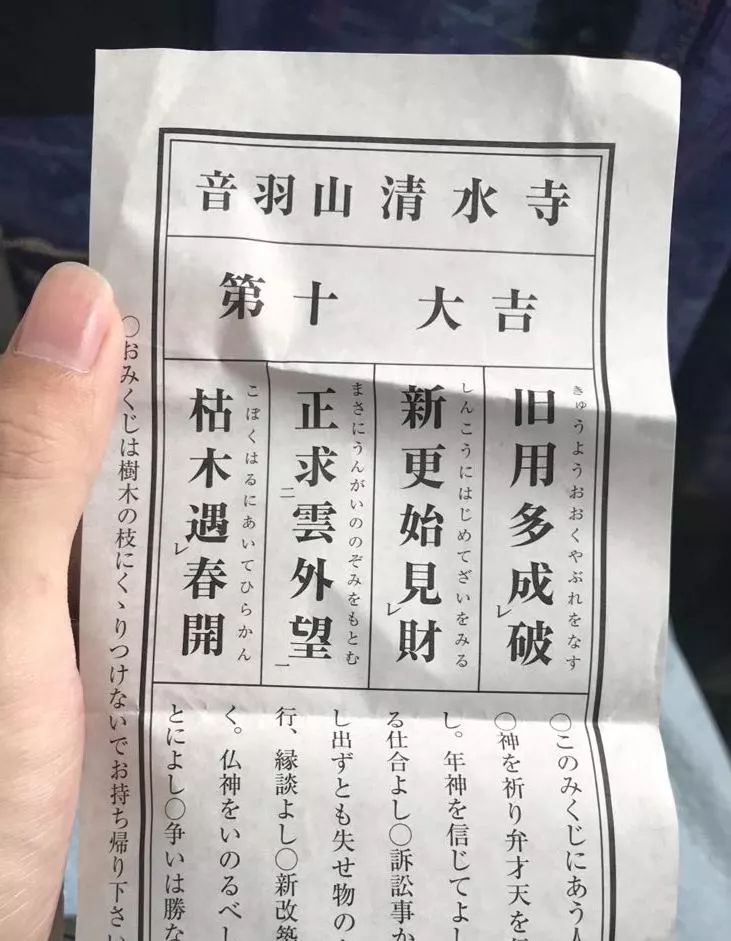 音羽山清水寺
第十 大吉
きゅうようおおくやぶれをなす
旧用多成レ破
しんこうにはじめてざいをみる
新更始見レ財
まさにうんがいののぞみをもとむ
正求二雲外望一
こぼくはるにあいてひらかん
枯木遇レ春開
〇このみくじにあう人
〇神を祈り弁才天を
し。年神を信じてよし
る仕合よし〇訴訟事か
し出ずとも失せ物の
行、縁談よし〇新改築
く。仏神をいのるべし
とによし〇争いは勝な
〇おみくじは樹木の枝にくゝりつけないでお持ち帰り下さい